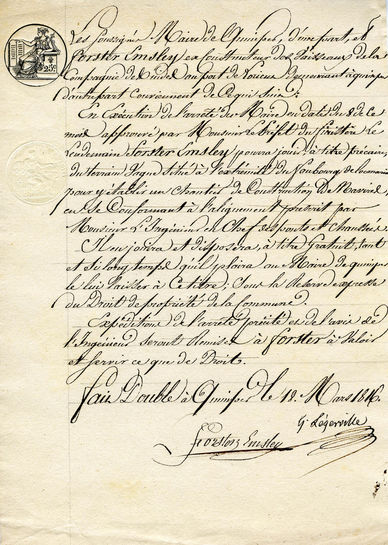 Les soussignés Maire de Quimper, d'une part, et
Forster Emsley ex constructeur des Vaisseaux de la
Compagnie de l'Inde au port de demeurant à quimper
d'autre part conviennent de ce qui suit:
En Exécution de l'arrêté du Maire en date du 8 de ce
mois approuvé par Monsieur le Préfet du finistère le
Lendemain Forster Emsley pourra jouir à titre précaire
du terrain vague situé à l'extrémité du faubourg de
pour y établir un chantier de Construction de Navires,
en se Conformant à l'alignement prescrit par
Monsieur l'Ingénieur en Chef des ponts et chaussées.
Il en jouira et disposera, à titre Gratuit, tant
et si longtemps qu'il plaira au Maire de quimper
de lui laisser à ce titre; sous la Réserve expresse
du Droit de propriété de la Commune.
Expéditions de l'arrêté précité et de l'avis de
l'Ingénieur seront Remises à forster à Valoir
et servir ce que de Droit.
fait Double à Quimper le 12 Mars 1816
G Légerville
Forster Emsley